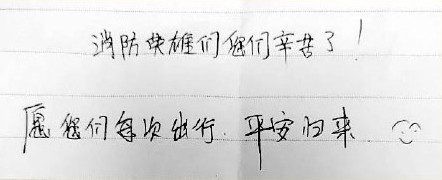 消防英雄们您们辛苦了!
愿您们每次出行.平安归来